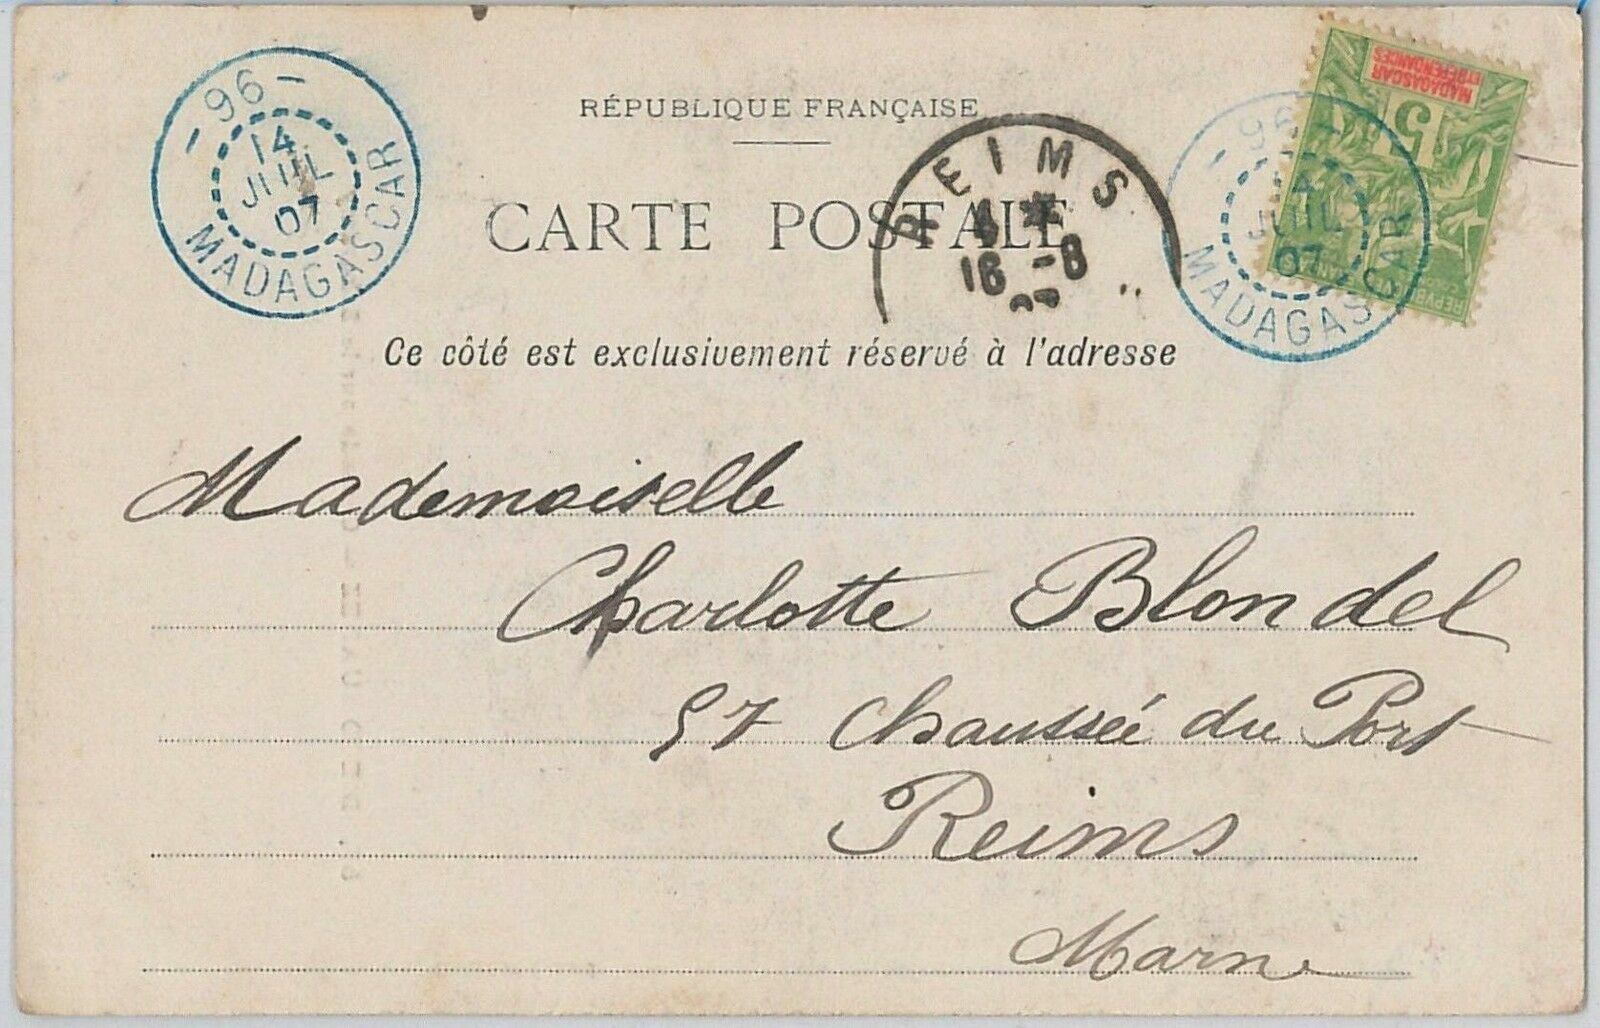 -96-
14
JUIL
07
MADAGASCAR
RÉPUBLIQUE FRANÇAISE
CARTE POSTALE
REIMS
16 -8
-96-
JUIL
07
MADAGASCAR
MADAGASCAR
ET DÉPENDANCES
5
Ce côté est exclusivement réservé à l'adresse
Mademoiselle
Charlotte Blondel
57 Chaussée du Port
Reims
Marne